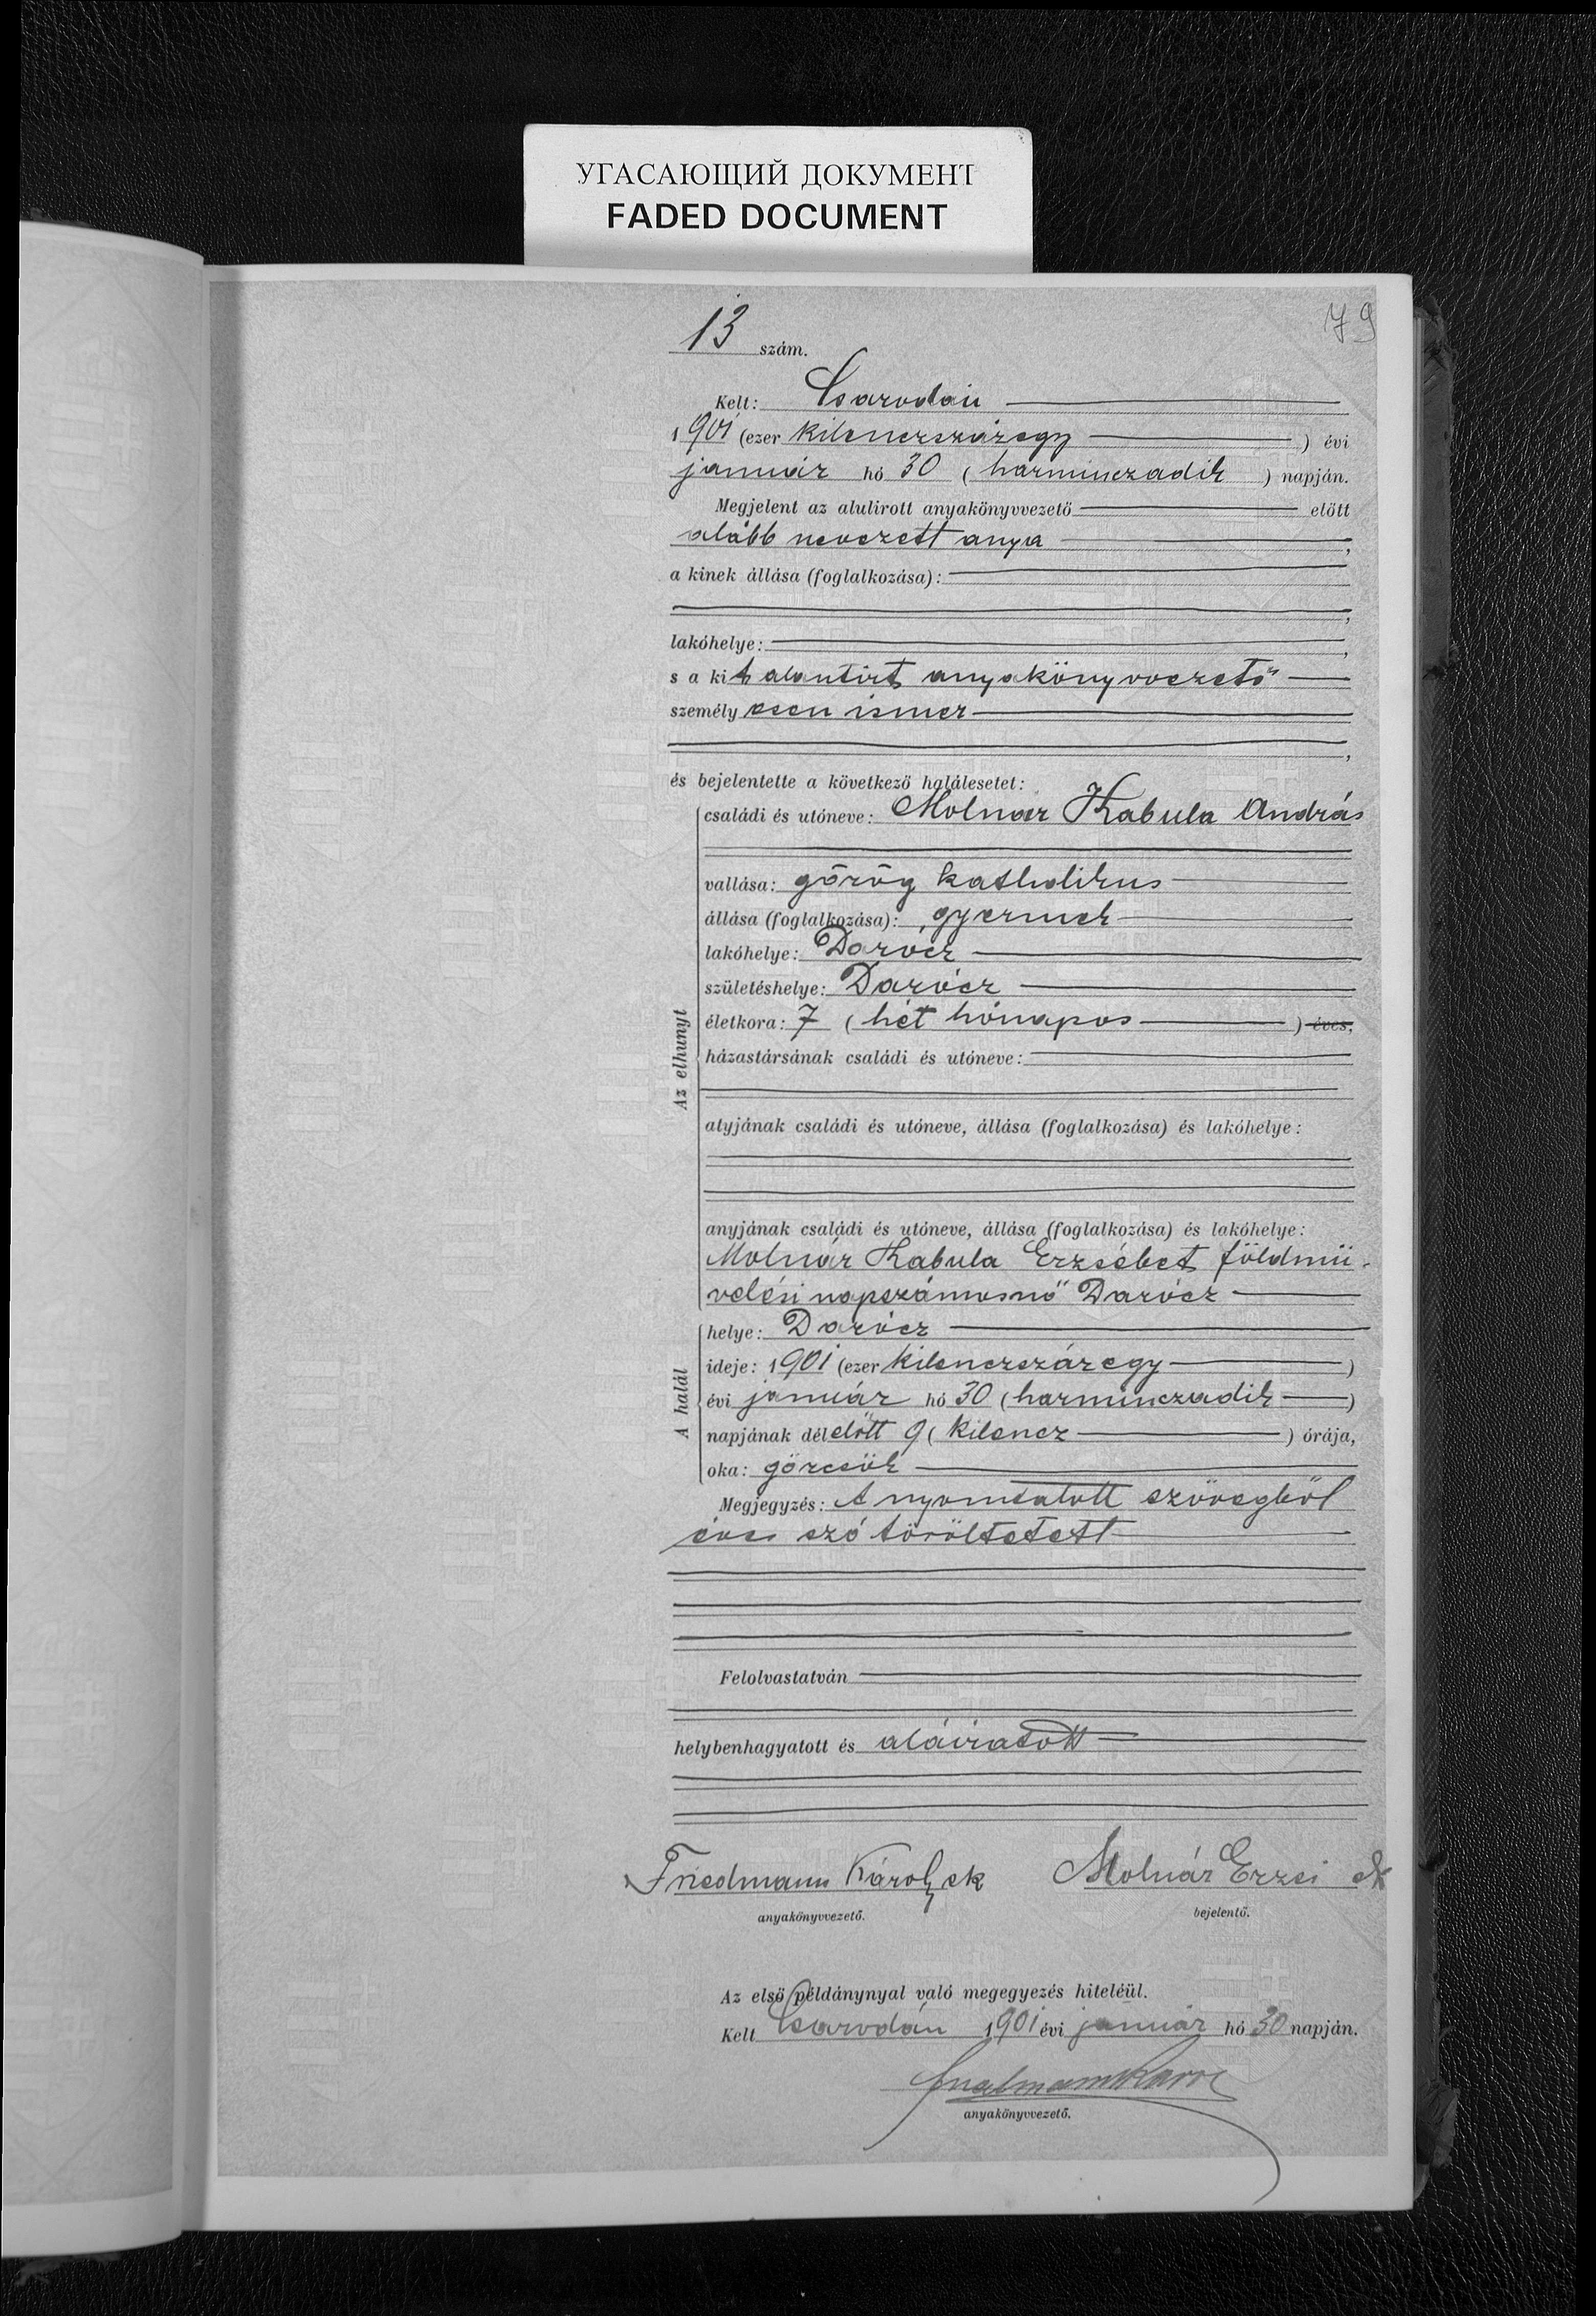 УГАСАЮЩИЙ ДОКУМЕНТ
FADED DOCUMENT
79
13 szám.
Kelt: Csarodán
1901 (ezer kilenczszázegy ) évi
január hó 30 ( harminczadik ) napján.
Megjelent az alulirott anyakönyvvezető előtt
alább nevezett anya ,
a kinek állása (foglalkozása):
,
lakóhelye: ,
s a kit alantirt anyakönyvvezető
személyesen ismer
,
és bejelentette a következő halálesetet:
Az elhunyt
családi és utóneve: Molnár Kabula András
vallása: görög katholikus
állása (foglalkozása): gyermek
lakóhelye: Darócz
születéshelye: Darócz
életkora: 7 ( hét hónapos ) éves,
házastársának családi és utóneve:
atyjának családi és utóneve, állása (foglalkozása) és lakóhelye:
anyjának családi és utóneve, állása (foglalkozása) és lakóhelye:
Molnár Kabula Erzsébet földmü-
velési napszámosnő Darócz
A halál
helye: Darócz
ideje: 1901 (ezer kilenczszázegy )
évi január hó 30 (harminczadik )
napjának délelőtt 9 ( kilencz ) órája,
oka: görcsök
Megjegyzés: A nyomtatott szövegből
éves szó töröltetett
Felolvastatván
helybenhagyatott és aláiratott
Friedmann Károly sk Molnár Erzsi sk
anyakönyvvezető. bejelentő.
Az első példánynyal való megegyezés hiteléül.
Kelt Csarodán 1901 évi január hó 30 napján.
Friedmann Károly
anyakönyvvezető.